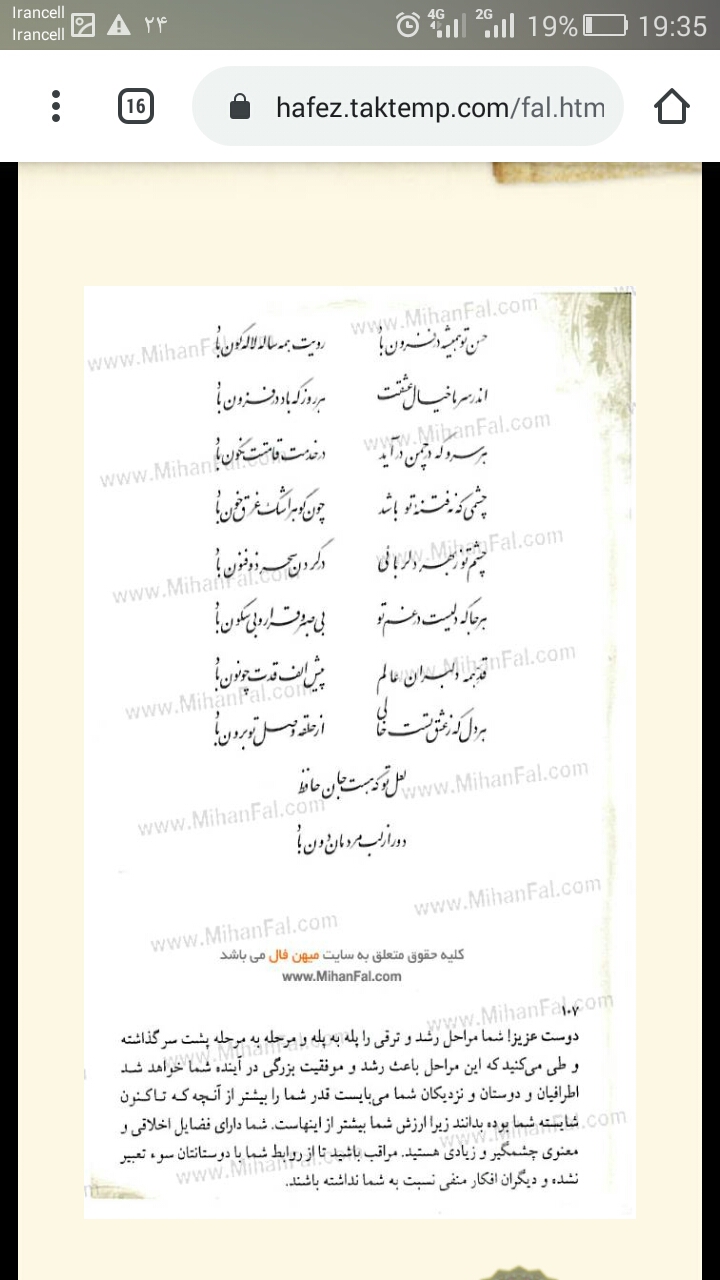 Irancell
Irancell
۲۴
4G
2G
19%
19:35
16
hafez.taktemp.com/fal.htm
www.MihanFal.com
حسن تو همیشه در فزون باد
رویت همه ساله لاله گون باد
اندر سر ما خیال عشقت
هر روز که باد در فزون باد
هر سرو که در چمن درآید
در خدمت قامتت نگون باد
چشمی که نه فتنه تو باشد
چون گوهر اشک غرق خون باد
چشم تو ز بهر دلربائی
در کردن سحر ذوفنون باد
هرجا که دلیست در غم تو
بی صبر و قرار و بی سکون باد
قد همه دلبران عالم
پیش الف قدت چو نون باد
هر دل که ز عشق تست خالی
از حلقه وصل تو برون باد
لعل تو که هست جان حافظ
دور از لب مردمان دون باد
کلیه حقوق متعلق به سایت میهن فال می باشد
www.MihanFal.com
۱۰۷
دوست عزیز! شما مراحل رشد و ترقی را پله به پله و مرحله به مرحله پشت سر گذاشته
و طی می‌کنید که این مراحل باعث رشد و موفقیت بزرگی در آینده شما خواهد شد
اطرافیان و دوستان و نزدیکان شما می‌بایست قدر شما را بیشتر از آنچه که تاکنون
شایسته شما بوده بدانند زیرا ارزش شما بیشتر از اینهاست. شما دارای فضایل اخلاقی و
معنوی چشمگیر و زیادی هستید. مراقب باشید تا از روابط شما با دوستانتان سوء تعبیر
نشده و دیگران افکار منفی نسبت به شما نداشته باشند.